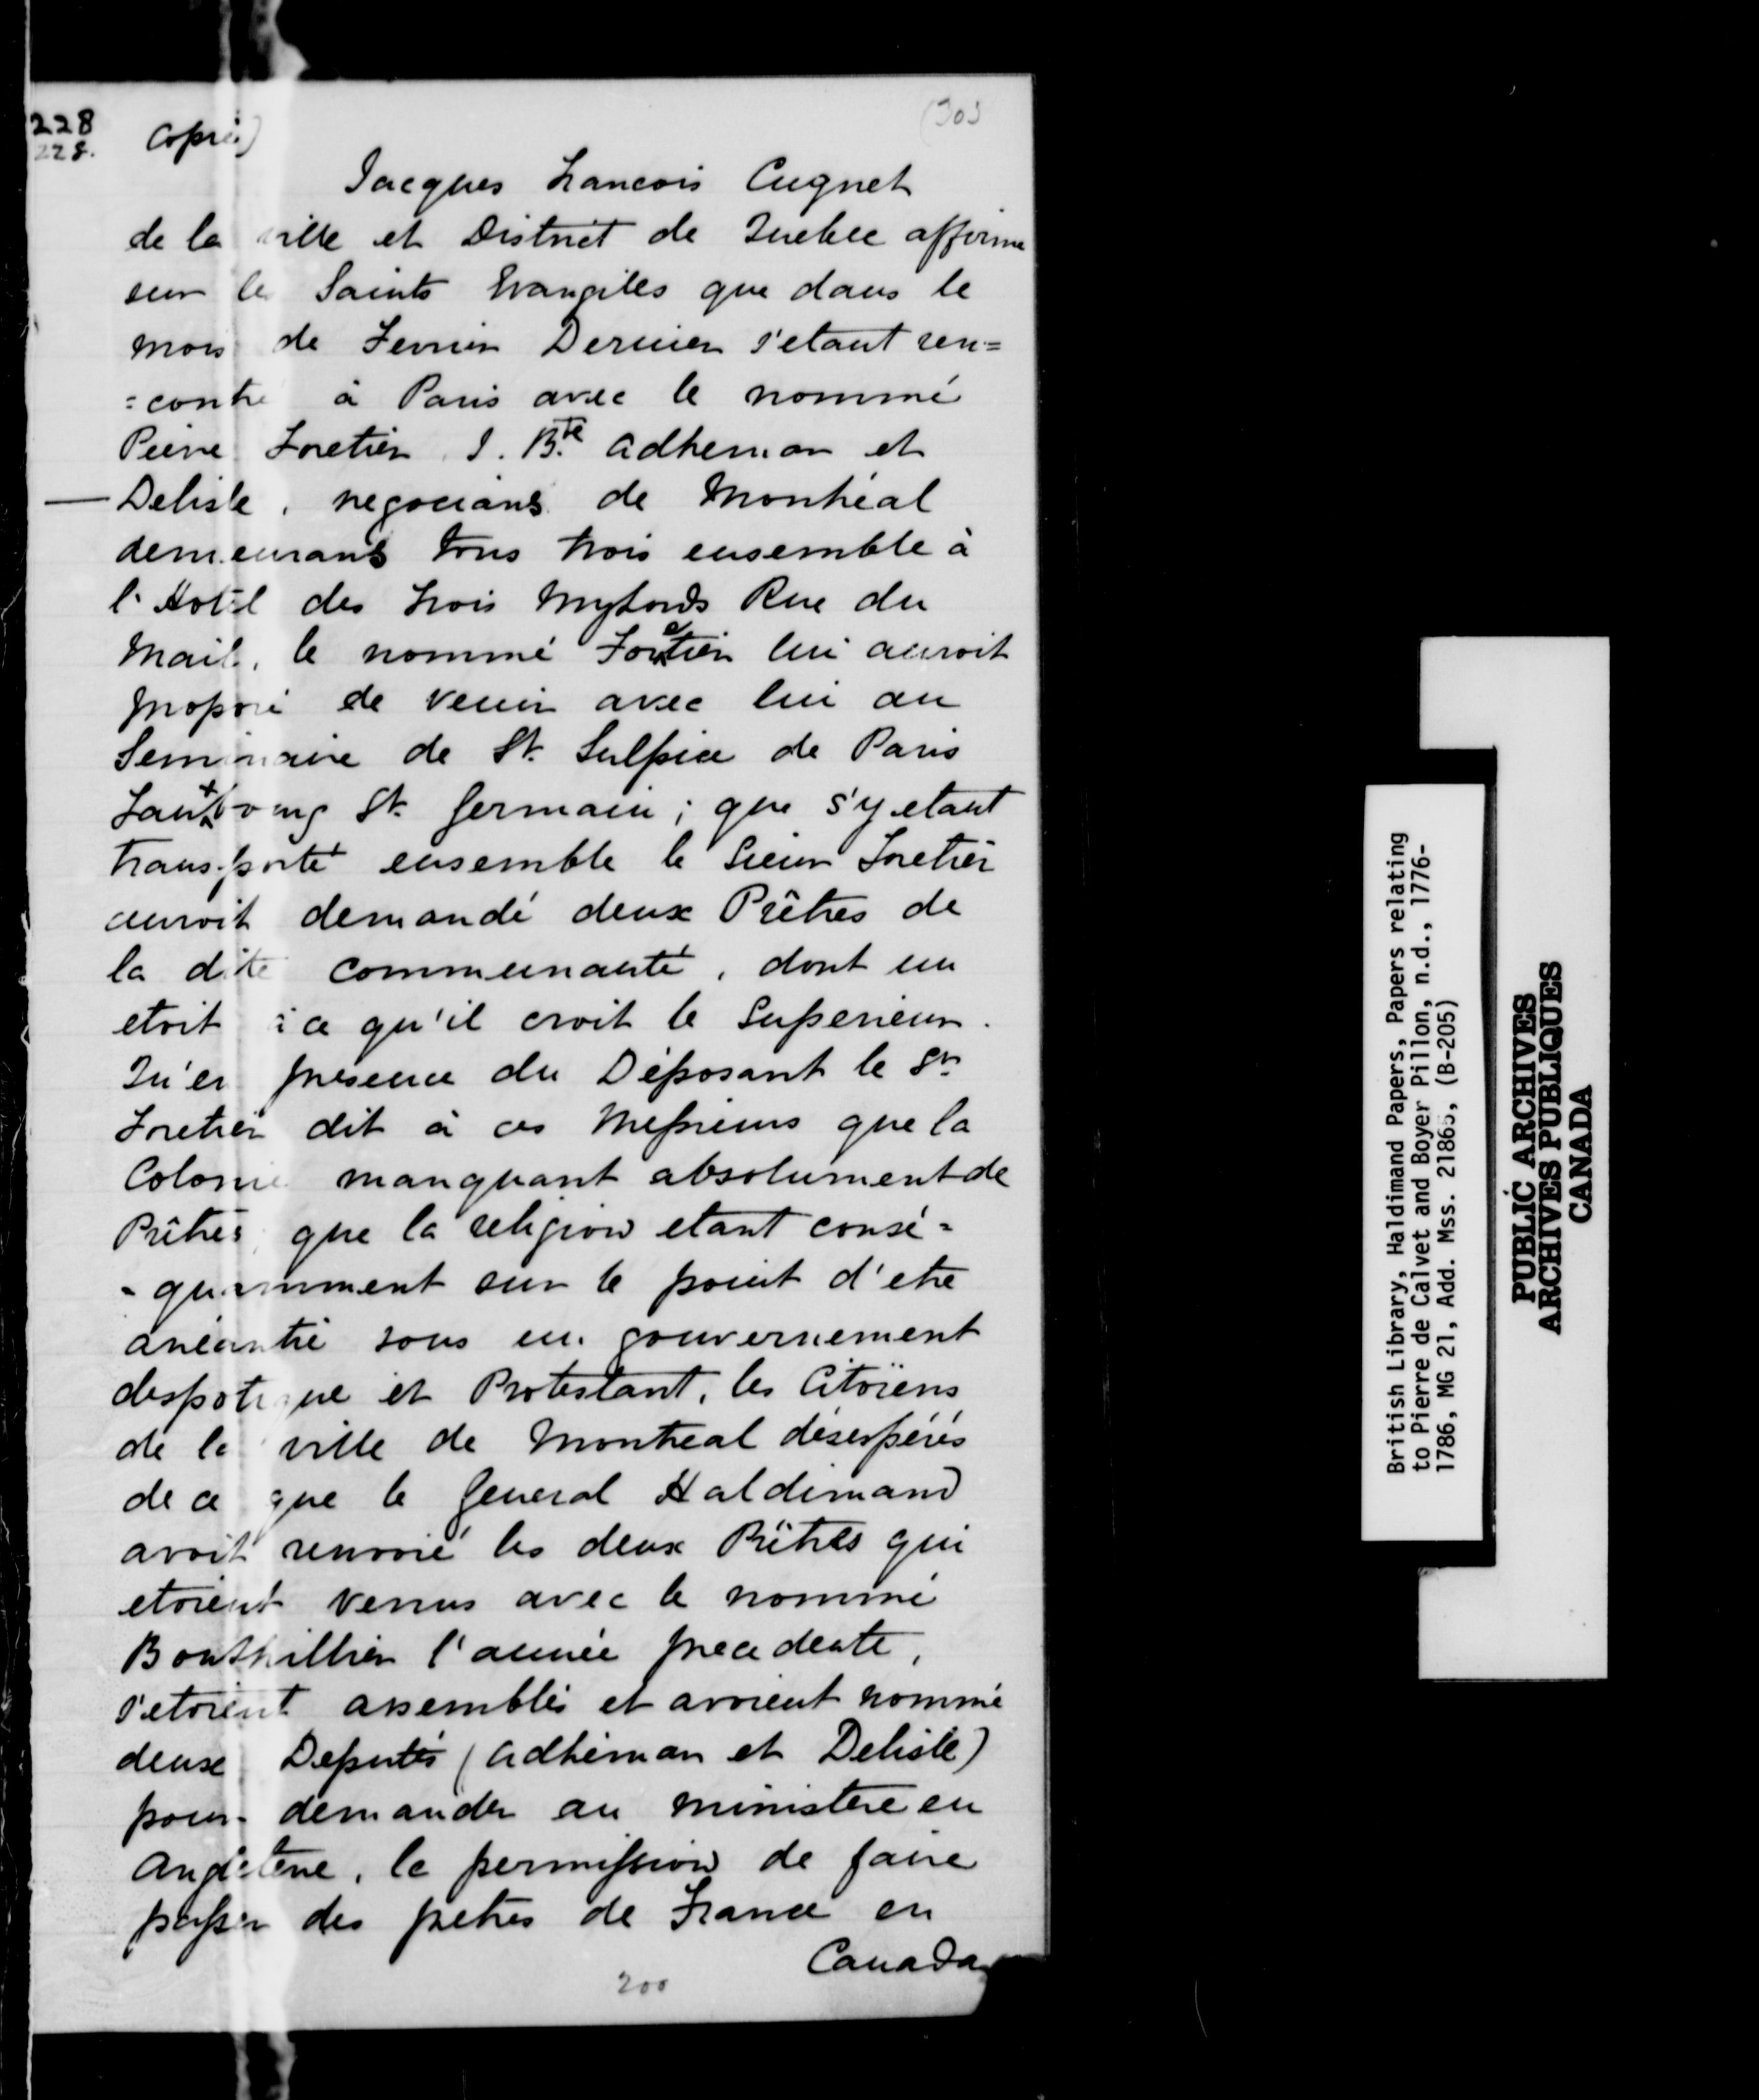 228
228.
Copie)
(303
Jacques Francois Cugnet
de la ville et District de Quebec affirme
sur les Saints Evangiles que dans le
mois de Fevrier Dernier s'etant ren=
=contré à Paris avec le nommé
Pierre Foretier, J. Bte Adhemar et
— Delisle, negocians de Montréal
demeurans tous trois ensemble à
l'Hotel des trois Mylords Rue du
Mail, le nommé Foretier lui auroit
proposé de venir avec lui au
Seminaire de St. Sulpice de Paris
Fauxbourg St. Germain; que s'y etant
transporté ensemble le Sieur Foretier
auroit demandé deux Prêtres de
la dite communauté, dont un
etoit à ce qu'il croit le Superieur.
Qu'en presence du Déposant le Sr.
Foretier dit à ces Messieurs que la
Colonie manquant absolument de
Prêtres, que la religion etant consé=
=quamment sur le point d'etre
anéantie sous un gouvernement
despotique et Protestant, les Citoïens
de la ville de Montreal désespérés
de ce que le General Haldimand
avoit renvoié les deux Prêtres qui
etoient venus avec le nommé
Bouthillier l'année precedente,
s'etoient assemblés et avoient nommé
deux Deputés (Adhémar et Delisle)
pour demander au ministere en
Angleterre, la permission de faire
passer des petres de France en
Canada
200
British Library, Haldimand Papers, Papers relating
to Pierre de Calvet and Boyer Pillon, n.d., 1776-
1786, MG 21, Add. Mss. 21865, (B-205)
PUBLIC ARCHIVES
ARCHIVES PUBLIQUES
CANADA